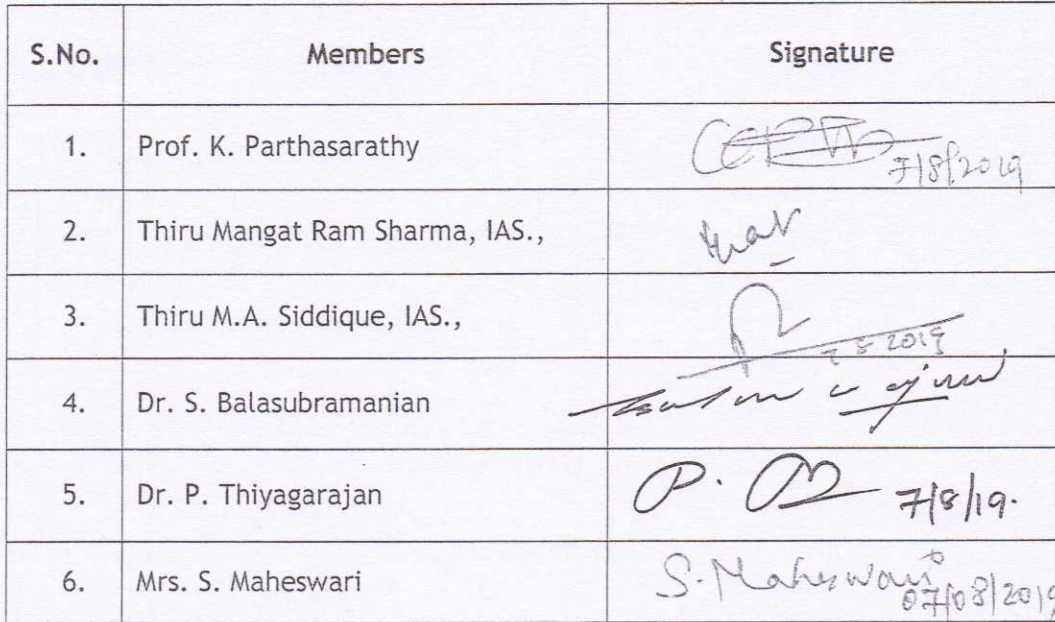 S.No. Members Signature
1. Prof. K. Parthasarathy 7/8/2019
2. Thiru Mangat Ram Sharma, IAS.,
3. Thiru M.A. Siddique, IAS., 2019
4. Dr. S. Balasubramanian
5. Dr. P. Thiyagarajan P. 7/8/19.
6. Mrs. S. Maheswari S. Maheswari 07/08/2019